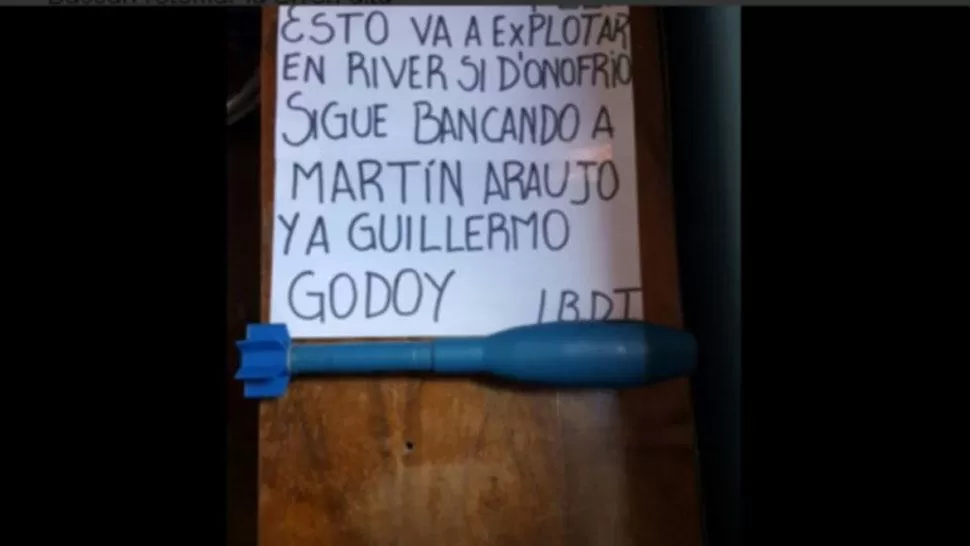 ESTO VA A EXPLOTAR
EN RIVER SI D'ONOFRIO
SIGUE BANCANDO A
MARTÍN ARAUJO
Y A GUILLERMO
GODOY LBDT